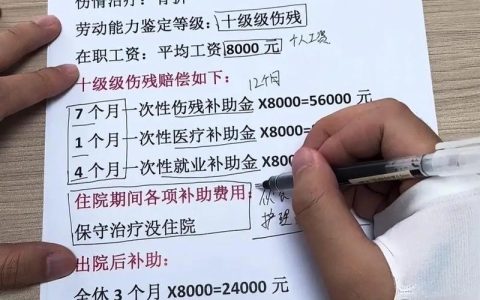 伤情治疗：骨折
劳动能力鉴定等级：十级级伤残
在职工资：平均工资8000元 个人工资
十级级伤残赔偿如下： 12个月
7个月一次性伤残补助金X8000=56000元
1个月一次性医疗补助金X8000=
4个月一次性就业补助金X80
住院期间各项补助费用：
护理
保守治疗没住院
出院后补助：
全休3个月X8000=24000元